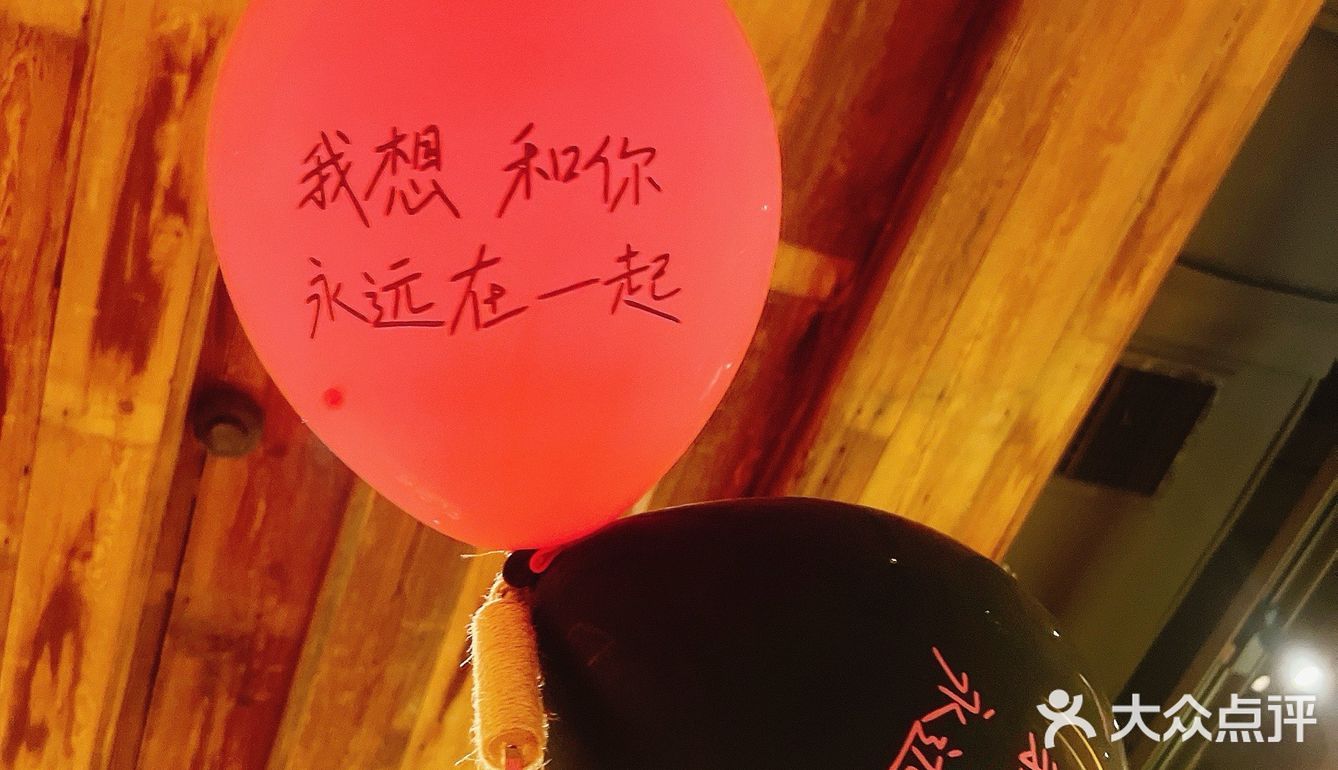 我想 和你
永远在一起
永远
大众点评